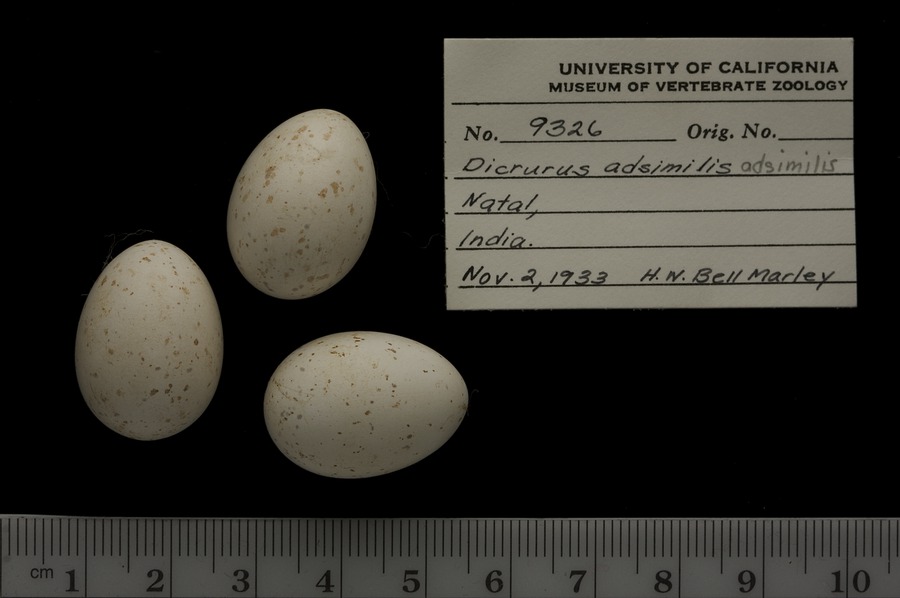 UNIVERSITY OF CALIFORNIA
MUSEUM OF VERTEBRATE ZOOLOGY
No. 9326 Orig. No.
Dicrurus adsimilis adsimilis
Natal,
India.
Nov. 2, 1933 H. W. Bell Marley
cm 1 2 3 4 5 6 7 8 9 10